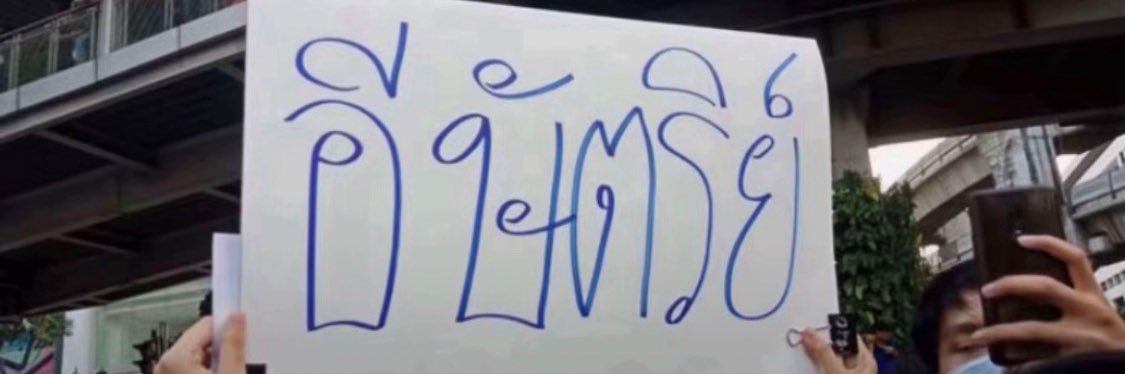 อีษัตริย์